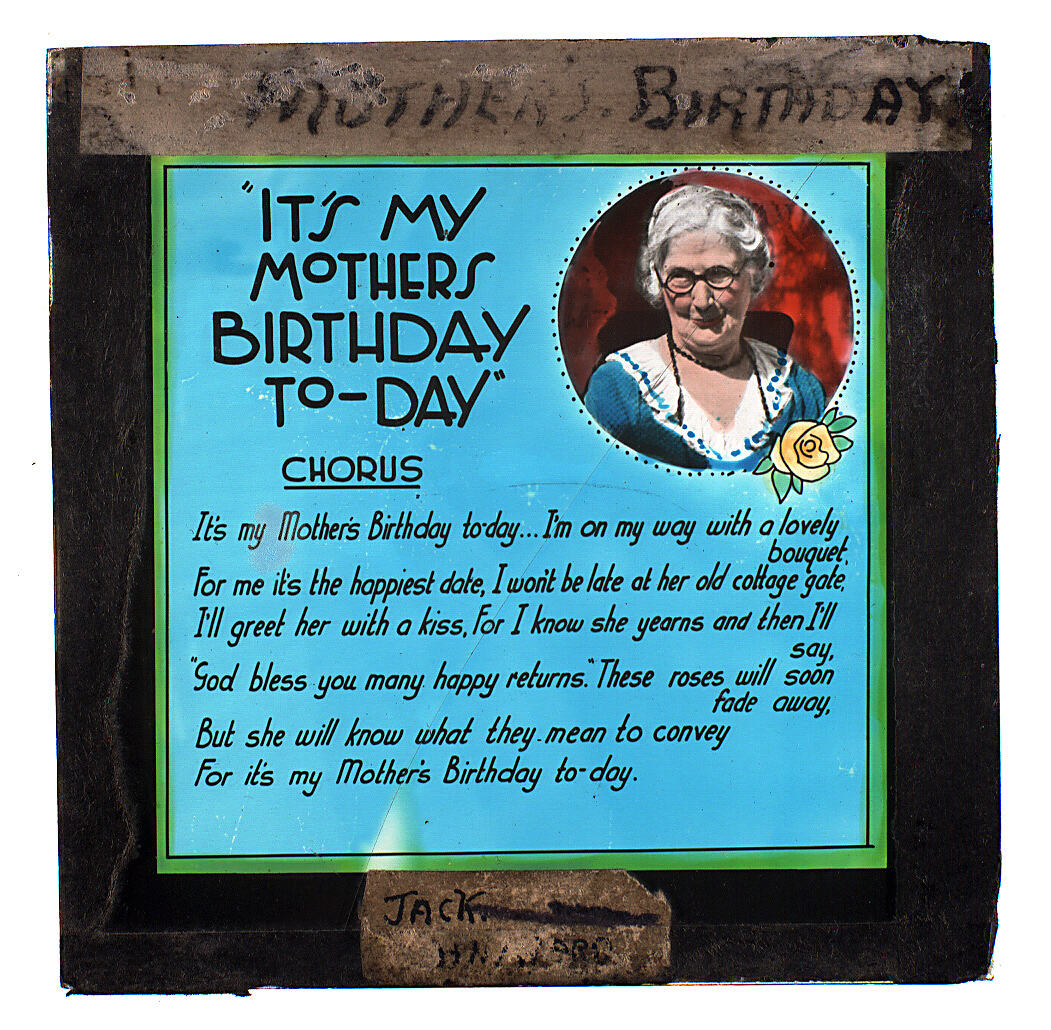 MOTHERS. BIRTHDAY.
"IT'S MY
MOTHERS
BIRTHDAY
TO-DAY"
CHORUS
It's my Mother's Birthday to-day... I'm on my way with a lovely
bouquet,
For me it's the happiest date, I won't be late at her old cottage gate,
I'll greet her with a kiss, For I know she yearns and then I'll
say,
"God bless you many happy returns." These roses will soon
fade away,
But she will know what they mean to convey
For it's my Mother's Birthday to-day.
JACK